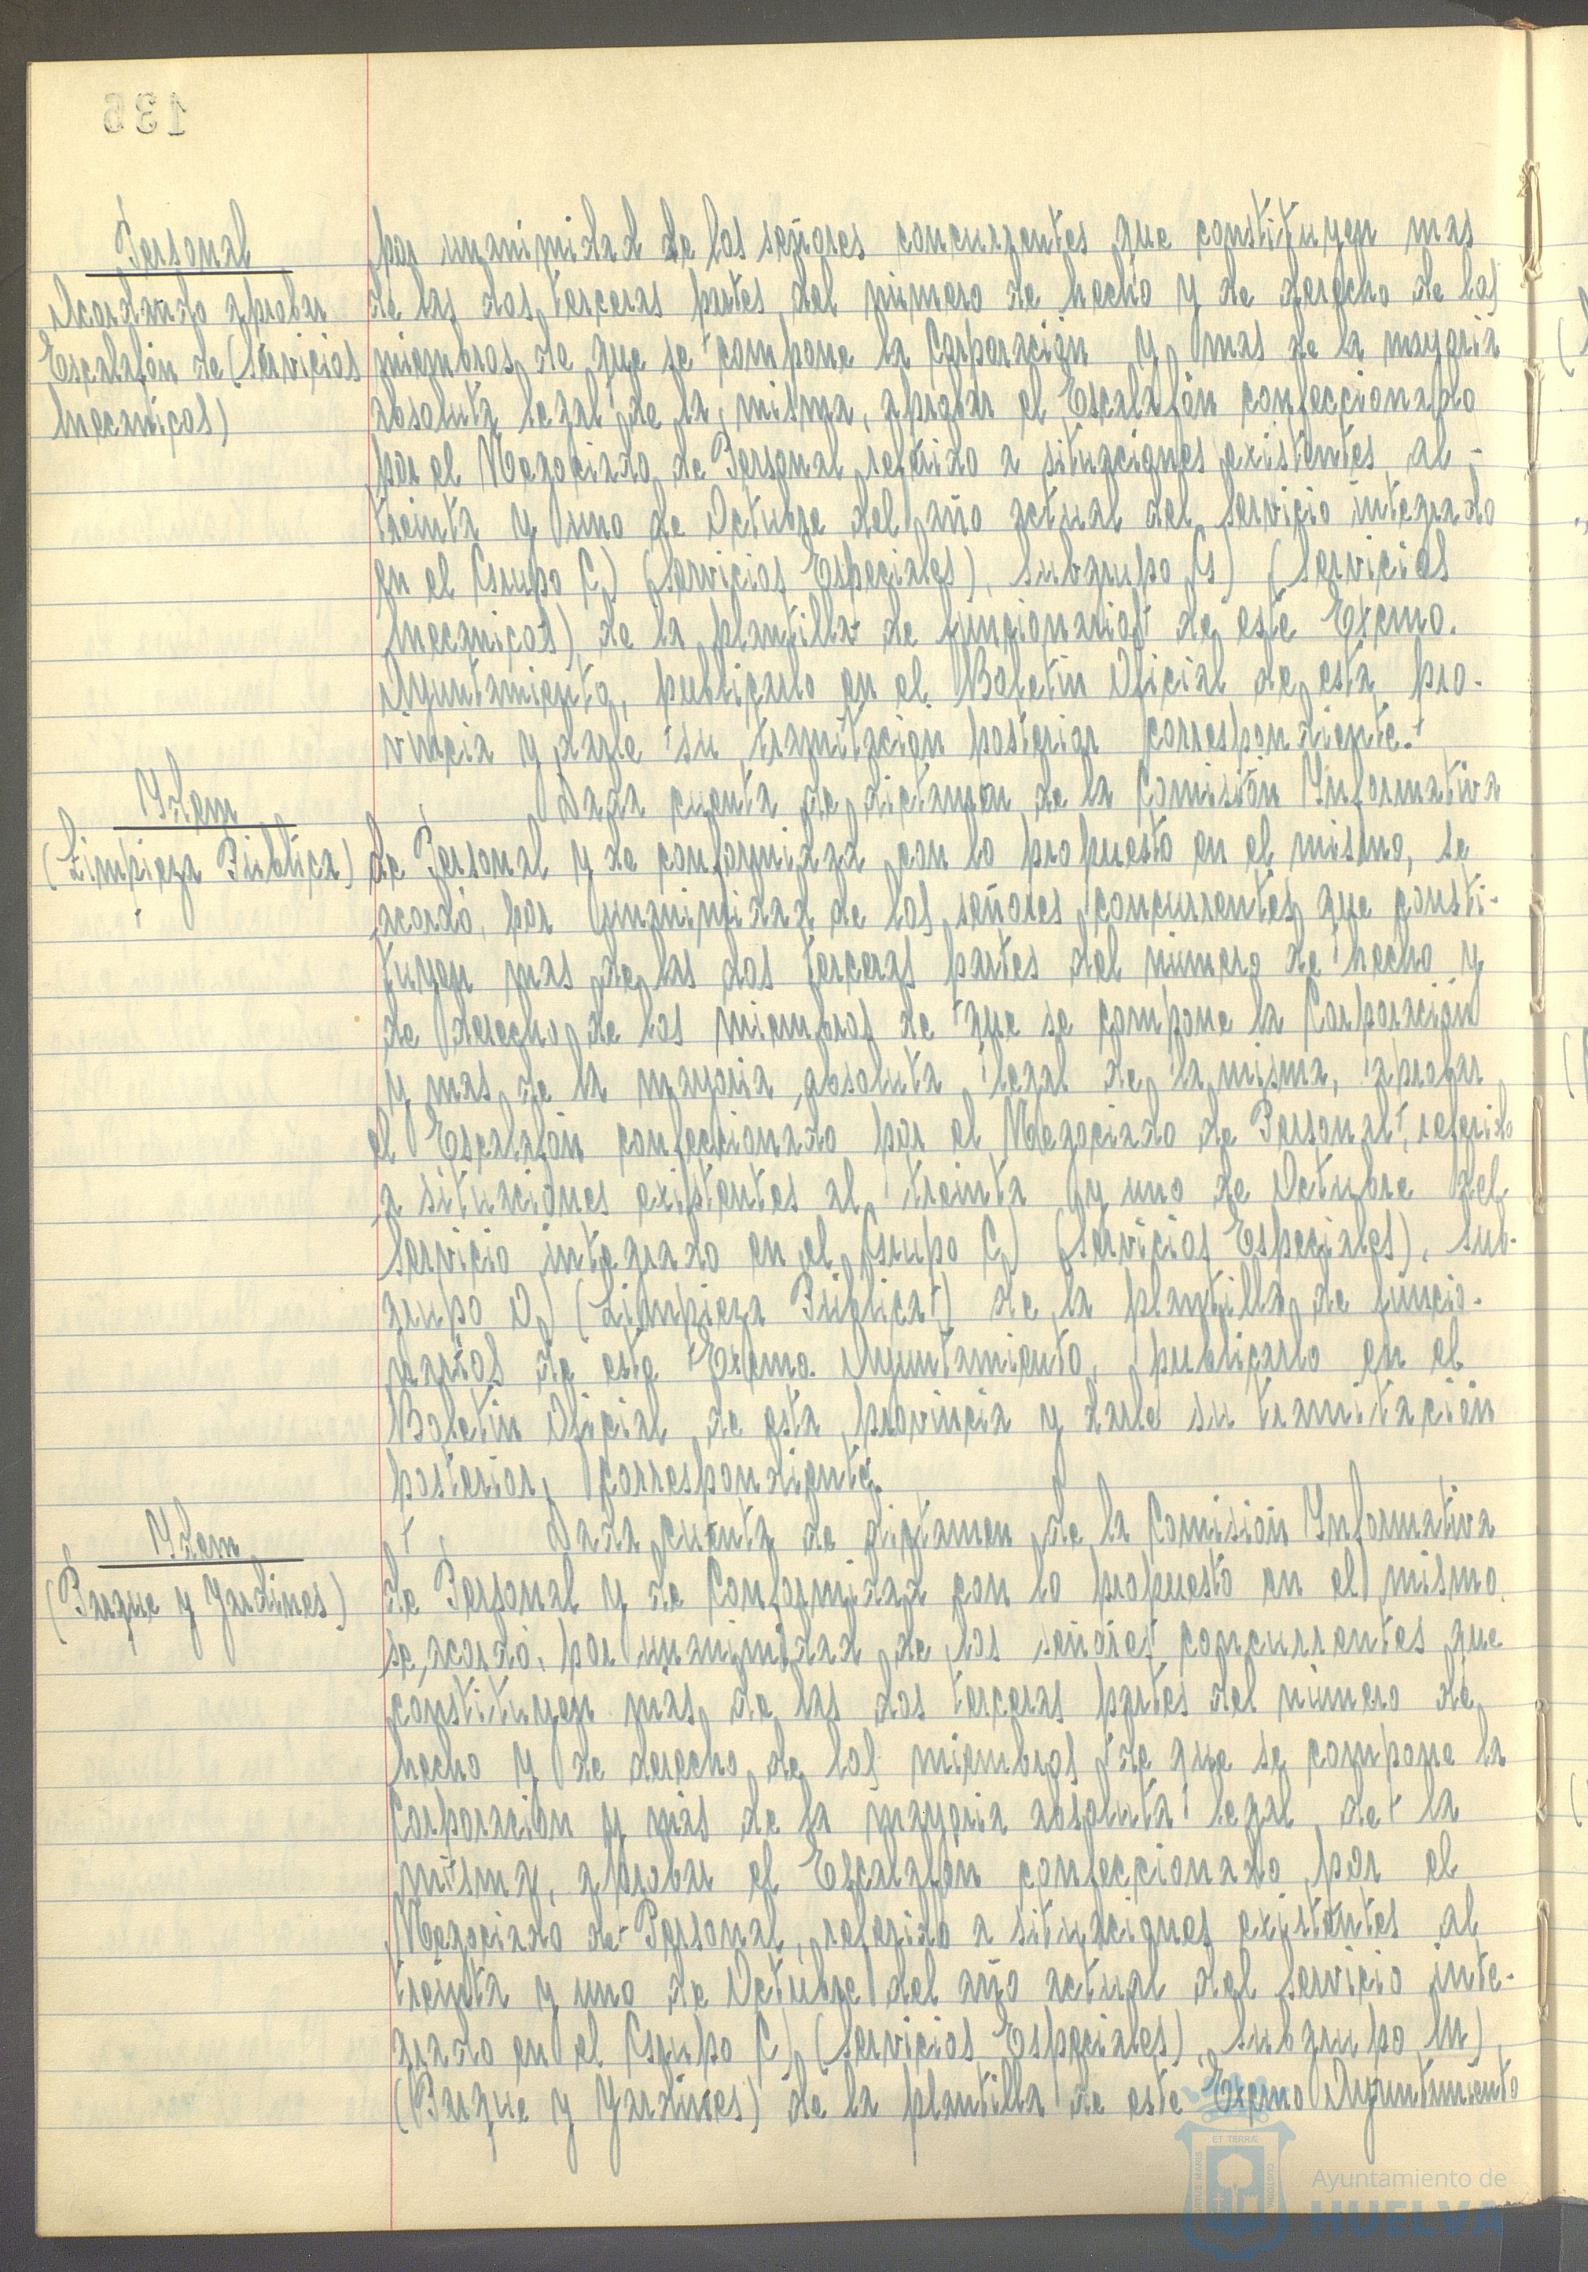 136
Personal
Acordando aprobar
Escalafón de (Servicios
Mecanicos)
por unanimidad de los señores concurrentes que constituyen mas
de las dos terceras partes del número de hecho y de derecho de los
miembros de que se compone la Corporación y mas de la mayoria
absoluta legal de la misma, aprobar el Escalafón confeccionado
por el Negociado de Personal referido a situaciones existentes al
treinta y uno de Octubre del año actual del Servicio integrado
en el Grupo C) (Servicios Especiales), Subgrupo G) (Servicios
Mecanicos) de la plantilla de funcionarios de este Excmo.
Ayuntamiento, publicarlo en el Boletin Oficial de esta pro-
vincia y darle su tramitación posterior correspondiente.
Ydem
(Limpieza Pública)
Dada cuenta de dictamen de la Comisión Ynformativa
de Personal y de conformidad con lo propuesto en el mismo, se
acordó, por unanimidad de los señores concurrentes que consti-
tuyen mas de las dos terceras partes del número de hecho y
de derecho de los miembros de que se compone la Corporación
y mas de la mayoria absoluta legal de la misma, aprobar
el Escalafón confeccionado por el Negociado de Personal, referido
a situaciones existentes al treinta y uno de Octubre del
Servicio integrado en el Grupo C) (Servicios Especiales), Sub-
grupo D) (Limpieza Pública) de la plantilla de funcio-
narios de este Excmo. Ayuntamiento, publicarlo en el
Boletin Oficial de esta provincia y darle su tramitación
posterior, correspondiente.
Ydem
(Parque y Jardines)
Dada cuenta de dictamen de la Comisión Ynformativa
de Personal y de Conformidad con lo propuesto en el mismo,
se acordó, por unanimidad de los señores concurrentes que
constituyen mas de las dos terceras partes del número de
hecho y de derecho de los miembros de que se compone la
Corporación y más de la mayoria absoluta legal de la
misma, aprobar el Escalafón confeccionado por el
Negociado de Personal, referido a situaciones existentes al
treinta y uno de Octubre del año actual del Servicio inte-
grado en el Grupo C) (Servicios Especiales), Subgrupo M)
(Parque y Jardines) de la plantilla de este Excmo Ayuntamiento
Ayuntamiento de
HUELVA